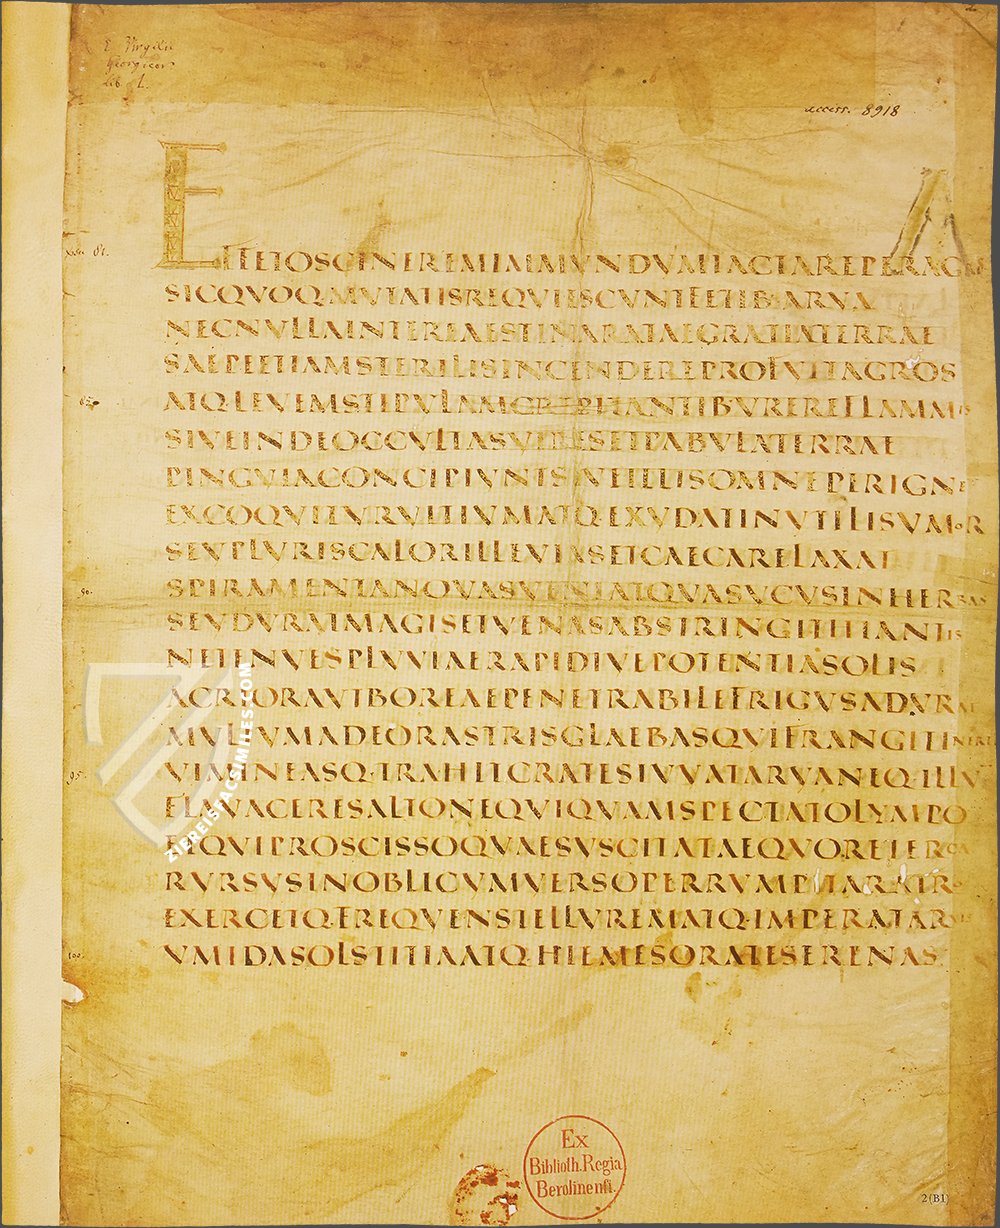 E Virgilii
Georgicor.
lib. I.
access. 8918
EFFETOSCINEREMIMMVNDVMIACTAREPERAGR
vers. 81.
SICQVOQ·MVTATISREQVIESCVNTFETIB·ARVA
NECNVLLAINTEREAESTINARATAEGRATIATERRAE
SAEPEETIAMSTERILISINCENDEREPROFVITAGROS
85. ATQ·LEVEMSTIPVLAMCREPITANTIBVREREFLAMMIS
SIVEINDEOCCVLTASVIRESETPABVLATERRAE
PINGVIACONCIPIVNTSIVEILLISOMNEPERIGNE
EXCOQVITVRVITIVMATQ·EXVDATINVTILISVMOR
SEVPLVRISCALORILLEVIASETCAECARELAXAT
90. SPIRAMENTANOVASVENIATQVASVCVSINHERBAS
SEVDVRATMAGISETVENASABSTRINGITHIANTIS
NETENVESPLVVIAERAPIDIVEPOTENTIASOLIS
ACRIORAVTBOREAEPENETRABILEFRIGVSADVRAE
MVLTVMADEORASTRISGLAEBASQVIFRANGITINERTI
95. VIMINEASQ·TRAHITCRATESIVVATARVANEQ·ILLV
FLAVACERESALTONEQVIQVAMSPECTATOLYMPO
ETQVIPROSCISSOQVAESVSCITATAEQVORETERGA
RVRSVSINOBLICVMVERSOPERRVMPITARATRO
EXERCETQ·FREQVENSTELLVREMATQ·IMPERATARVIS
100. VMIDASOLSTITIAATQ·HIEMESORATESERENAS
ZIEREISFACSIMILES.COM
Ex
Biblioth. Regia
Berolinensi.
2 (B1)